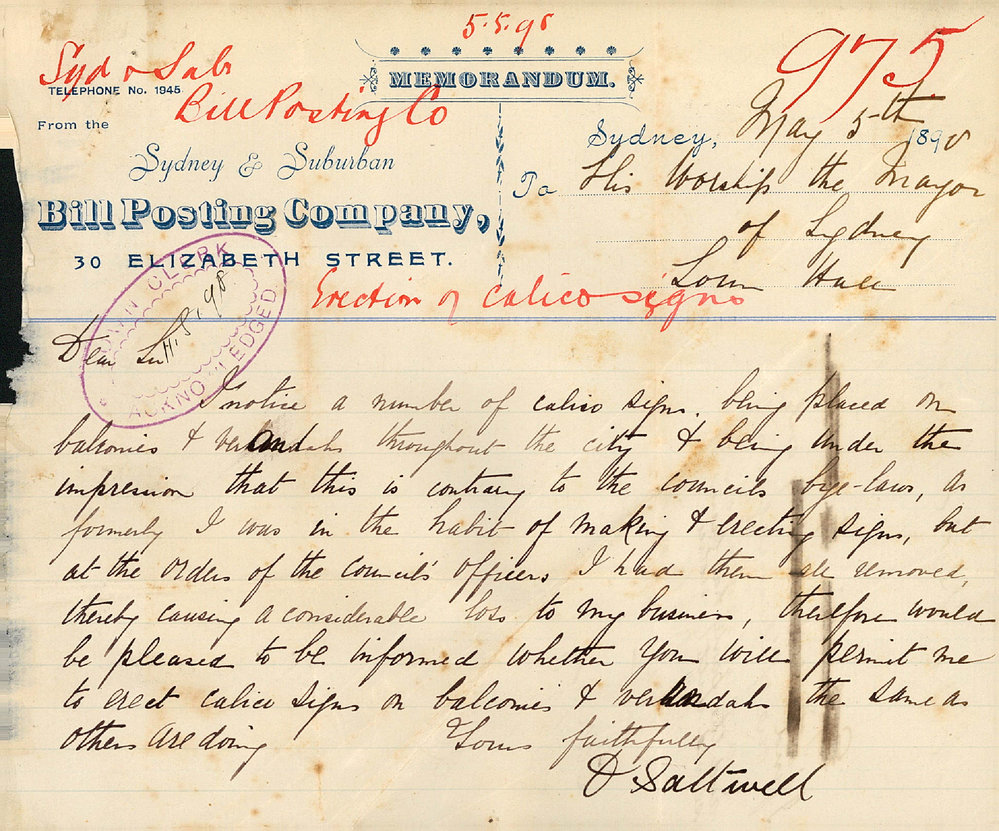 5.5.98
975
Syd & Subn
TELEPHONE No. 1945
Bill Posting Co
MEMORANDUM.
From the
Sydney & Suburban
Bill Posting Company,
30 ELIZABETH STREET.
Sydney, May 5th 1898
To His Worship the Mayor
of Sydney
Town Hall
Erection of Calico signs
TOWN CLERK
ACKNOWLEDGED
Dear Sir
I notice a number of calico signs, being placed on
balconies & verandahs throughout the city & being under the
impression that this is contrary to the councils bye-laws, as
formerly I was in the habit of making & erecting signs, but
at the orders of the Council's officers I had them all removed,
thereby causing a considerable loss to my business, therefore would
be pleased to be informed whether You will permit me
to erect calico signs on balconies & verandahs the same as
others are doing
Yours faithfully
D Saltwell